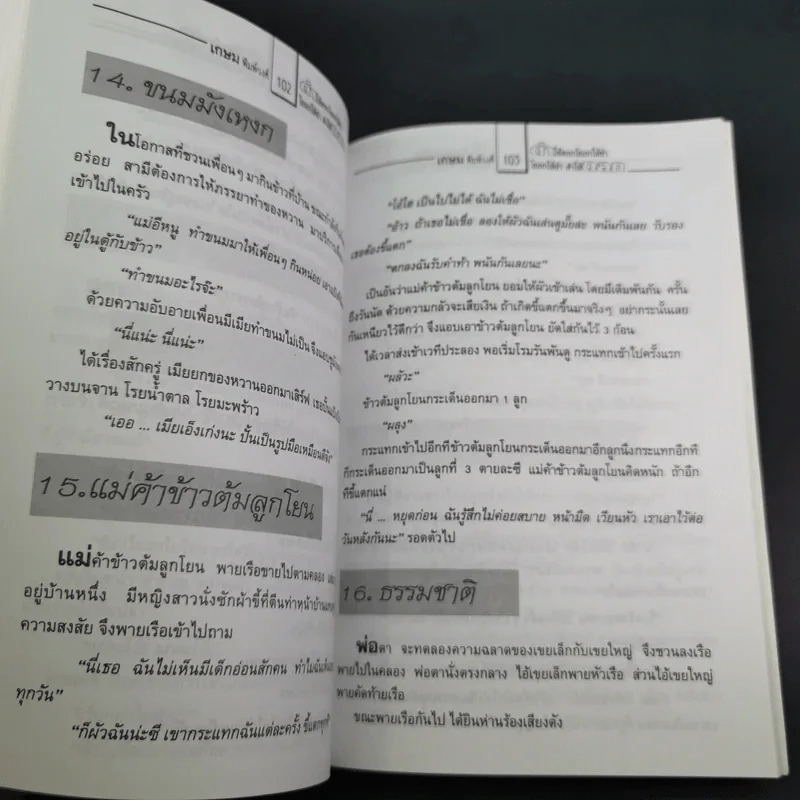 เกษม พิมพ์วงศ์ 102
14. ขนมมังเหงก
ในโอกาสที่ชวนเพื่อนๆ มากินข้าวที่บ้าน
อร่อย สามีต้องการให้ภรรยาทำของหวาน
เข้าไปในครัว
“แม่อีหนู ทำขนมมาให้เพื่อนๆ กินหน่อย
อยู่ในตู้กับข้าว”
“ทำขนมอะไรจ๊ะ”
ด้วยความอับอายเพื่อนมีเมียทำขนมไม่เป็น
“นี่แน่ะ นี่แน่ะ”
ได้เรื่องสักครู่ เมียยกของหวานออกมาเสิร์ฟ
วางบนจาน โรยน้ำตาล โรยมะพร้าว
“เออ ... เมียเอ็งเก่งนะ ปั้นเป็นรูปมือเหมือนดีจัง”
15.แม่ค้าข้าวต้มลูกโยน
แม่ค้าข้าวต้มลูกโยน พายเรือขายไปตามคลอง
อยู่บ้านหนึ่ง มีหญิงสาวนั่งซักผ้าขี้ที่ตีนท่าหน้าบ้าน
ความสงสัย จึงพายเรือเข้าไปถาม
“นี่เธอ ฉันไม่เห็นมีเด็กอ่อนสักคน
ทุกวัน”
“ก็ผัวฉันน่ะซี เขากระแทกฉันแต่ละครั้ง
เกษม พิมพ์วงศ์ 103
“โอ๊ไฮ้ เป็นไปไม่ได้ ฉันไม่เชื่อ”
“อ้าว ถ้าเธอไม่เชื่อ ลองให้ผัวฉันเล่นดูมั้ยล่ะ พนันกันเลย รับรอง
เธอต้องขี้แตก”
“ตกลงฉันรับคำท้า พนันกันเลยนะ”
เป็นอันว่าแม่ค้าข้าวต้มลูกโยน ยอมให้ผัวเข้าเล่น โดยมีเดิมพันกัน ครั้น
ถึงวันนัด ด้วยความกลัวจะเสียเงิน ถ้าเกิดขี้แตกขึ้นมาจริงๆ อย่ากระนั้นเลย
กันเหนียวไว้ดีกว่า จึงแอบเอาข้าวต้มลูกโยน ยัดใส่ก้นไว้ 3 ก้อน
ได้เวลาส่งเข้าเวทีประลอง พอเริ่มโรมรันพันตู กระแทกเข้าไปครั้งแรก
“ผลัวะ”
ข้าวต้มลูกโยนกระเด็นออกมา 1 ลูก
“ผลุง”
กระแทกเข้าไปอีกทีข้าวต้มลูกโยนกระเด็นออกมาอีกลูกนึ่งกระแทกอีกที
ก็กระเด็นออกมาเป็นลูกที่ 3 ตายละซี แม่ค้าข้าวต้มลูกโยนคิดหนัก ถ้าอีก
ทีขี้แตกแน่
“นี่ ... หยุดก่อน ฉันรู้สึกไม่ค่อยสบาย หน้ามืด เวียนหัว เราเอาไว้ต่อ
วันหลังกันนะ” รอดตัวไป
16. ธรรมชาติ
พ่อตา จะทดลองความฉลาดของเขยเล็กกับเขยใหญ่ จึงชวนลงเรือ
พายไปในคลอง พ่อตานั่งตรงกลาง ไอ้เขยเล็กพายหัวเรือ ส่วนไอ้เขยใหญ่
พายคัดท้ายเรือ
ขณะพายเรือกันไป ได้ยินห่านร้องเสียงดัง